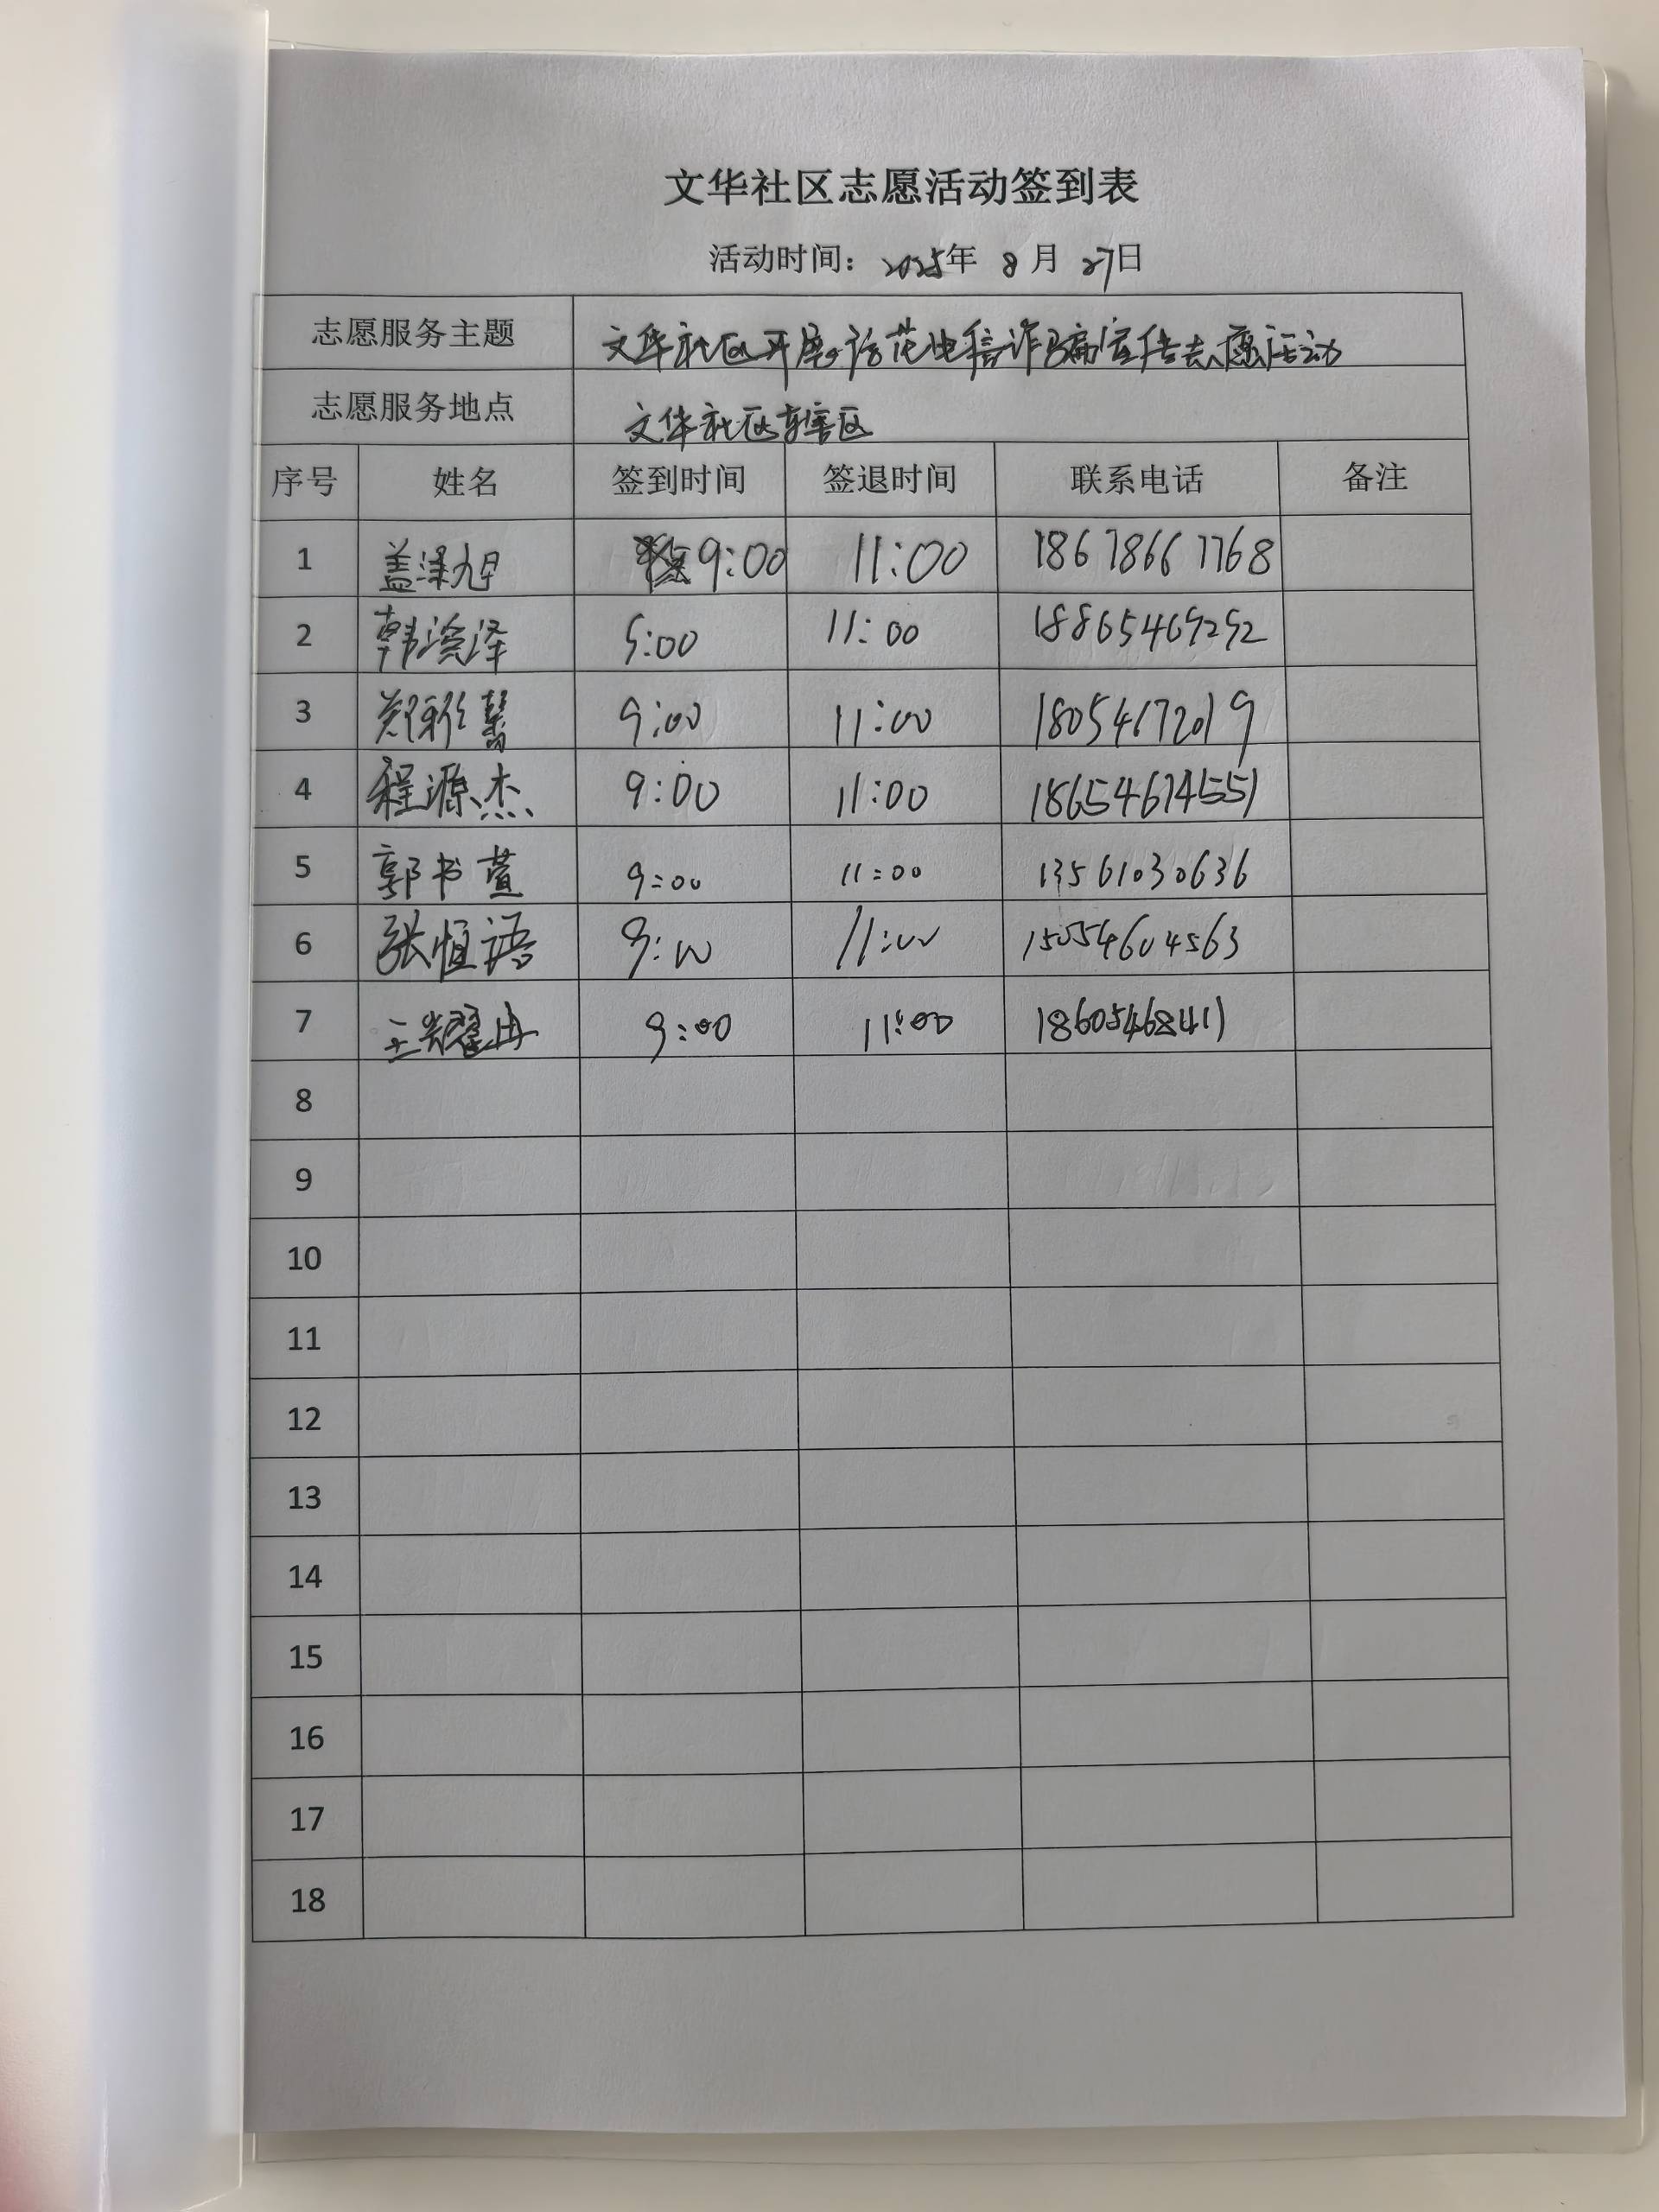 文华社区志愿活动签到表
活动时间：2025年 8月 27日
志愿服务主题 文华社区开展防范电信诈骗宣传志愿活动
志愿服务地点 文华社区辖区
序号 姓名 签到时间 签退时间 联系电话 备注
1 盖泽旭 9:00 11:00 18678667768
2 韩滨泽 9:00 11:00 18865469292
3 郑雅馨 9:00 11:00 18054672019
4 程源杰 9:00 11:00 18654674551
5 郭书萱 9:00 11:00 13561030636
6 张恒语 9:00 11:00 15054604563
7 王耀冉 9:00 11:00 18605468411
8
9
10
11
12
13
14
15
16
17
18